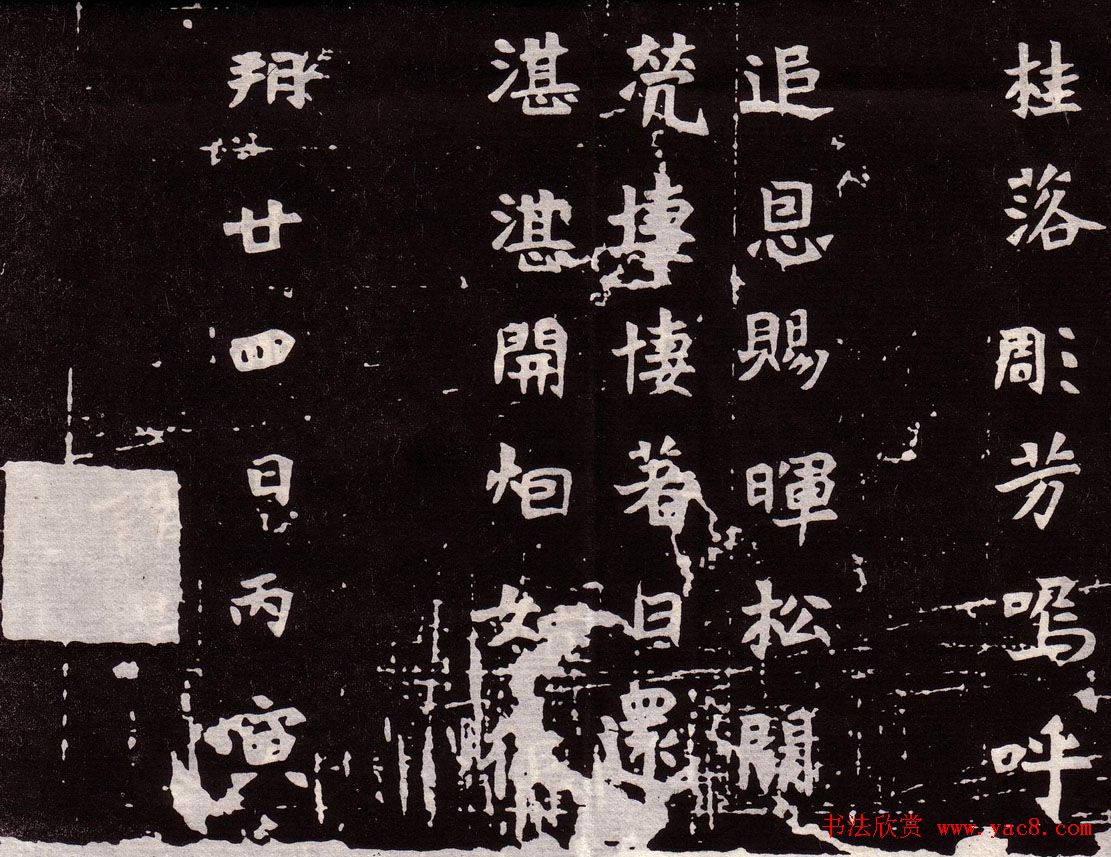 桂落彫芳嗚呼
追恩賜暉松關
悽悽著日還
湛湛開
朔廿四日丙寅
书法欣赏 www.yac8.com